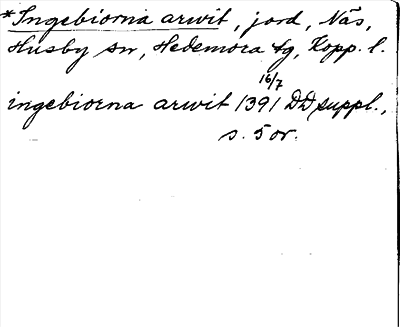 *Ingebiorna arwit, jord, Näs,
Husby sn, Hedemora tg, Kopp. l.
ingebiorna arwit 1391 16/7 DD suppl.,
s. 5 or.